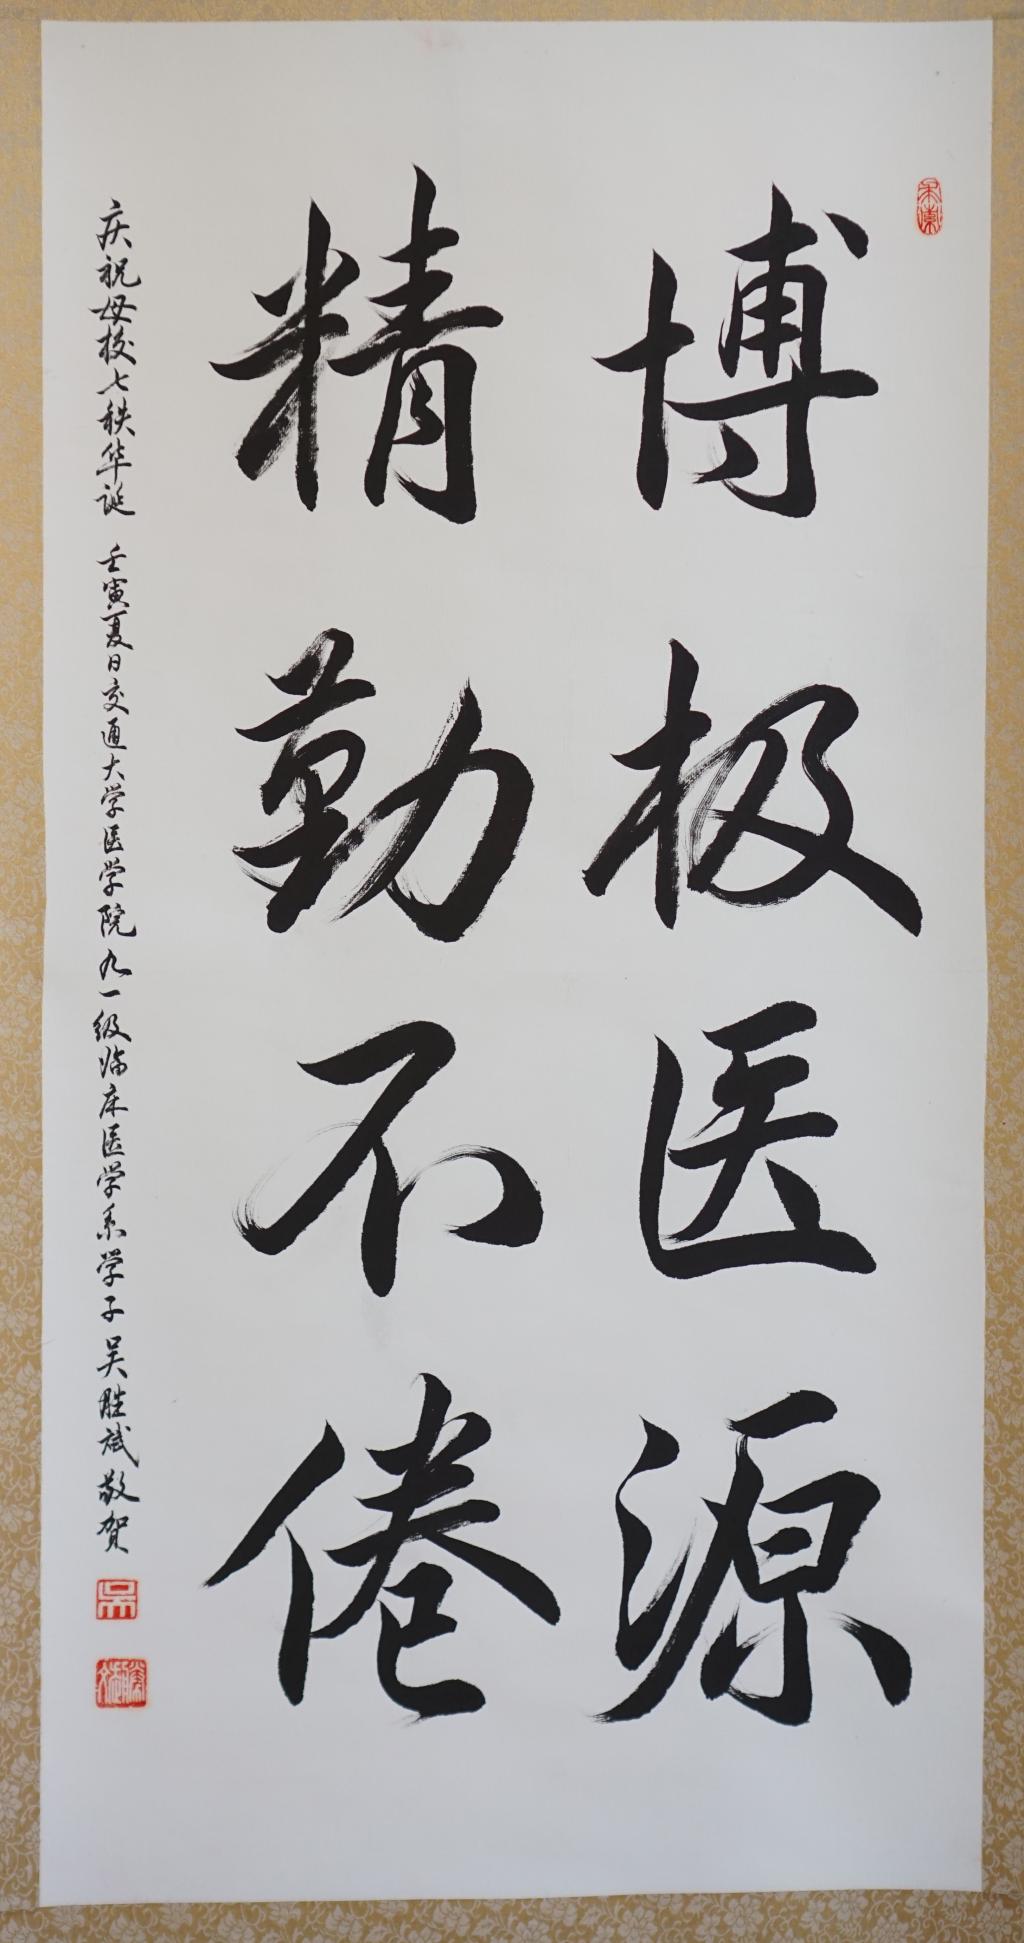 博极医源
精勤不倦
庆祝母校七秩华诞 壬寅夏日交通大学医学院九一级临床医学系学子吴胜斌敬贺
吴